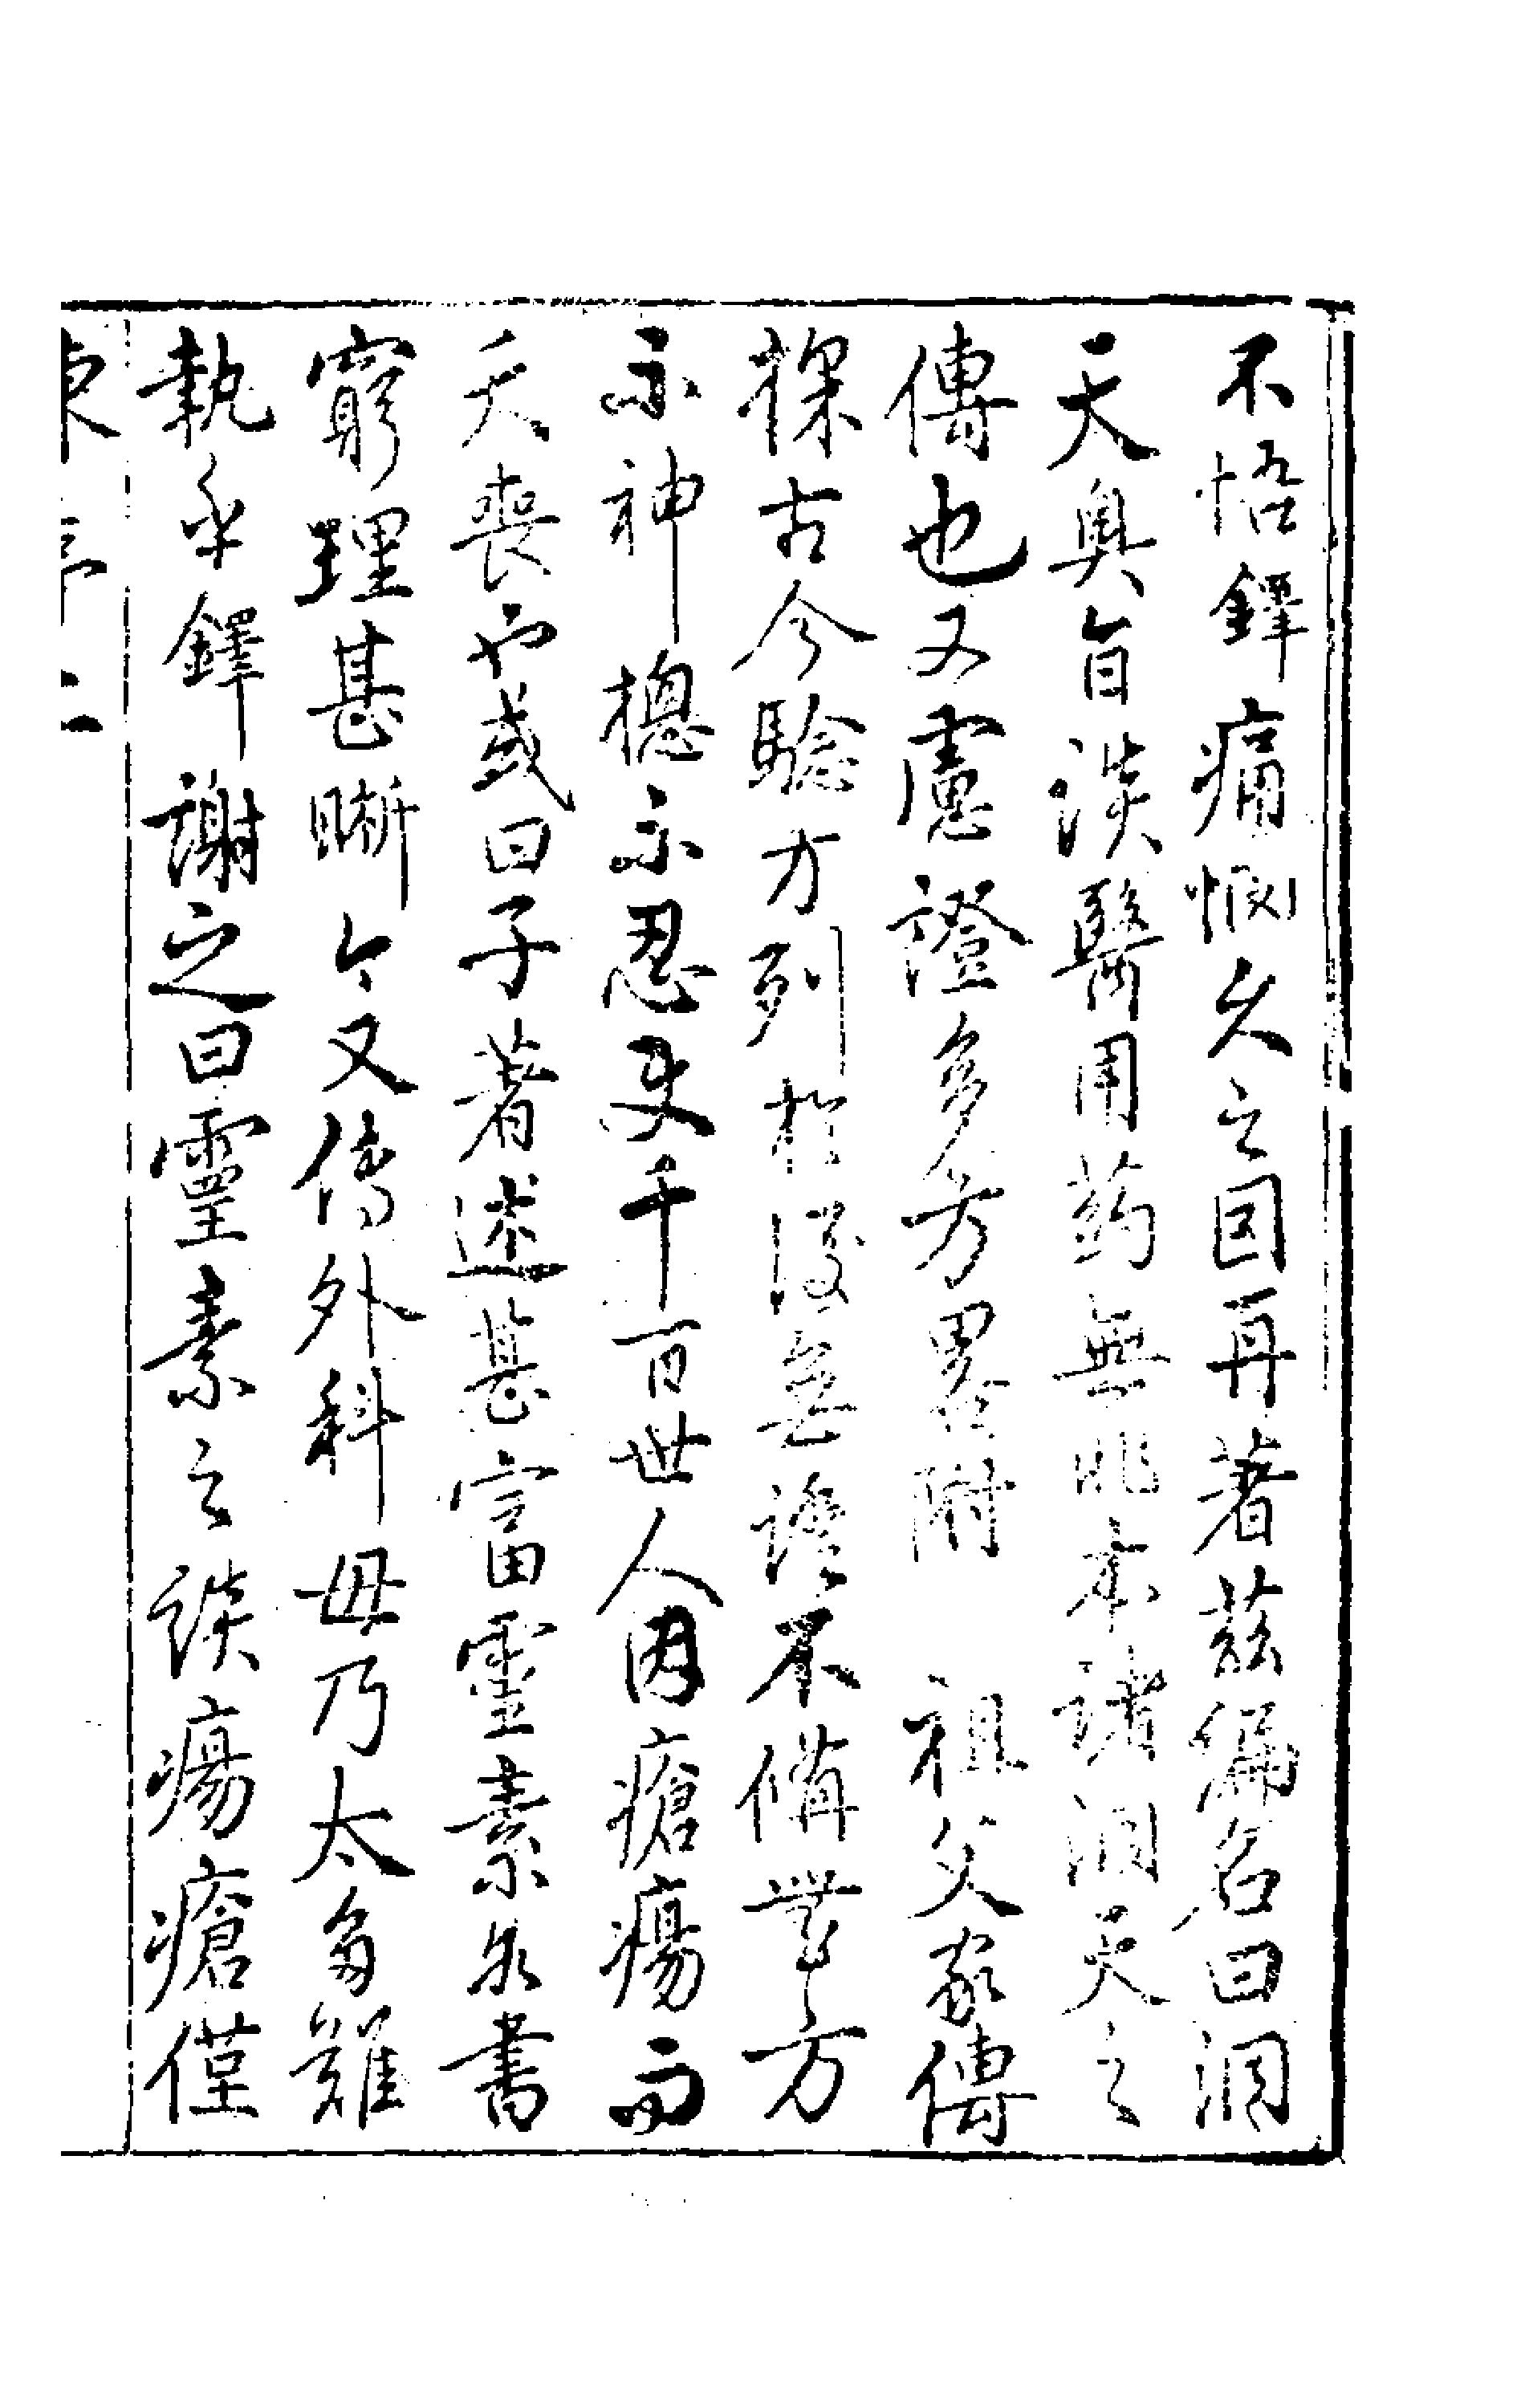 不悟鐸痛憫久之因再著茲編名曰洞
天奧旨談醫用葯無非本諸洞天之
傳也又慮證多方畧附 祖父家傳
採古今驗方列於後無證不備無方
不神總不忍使千百世人因瘡瘍而
夭喪也或曰子著述甚富靈素書
窮理甚晰今又傳外科毋乃太多難
執乎鐸謝之曰靈素之談瘍瘡僅